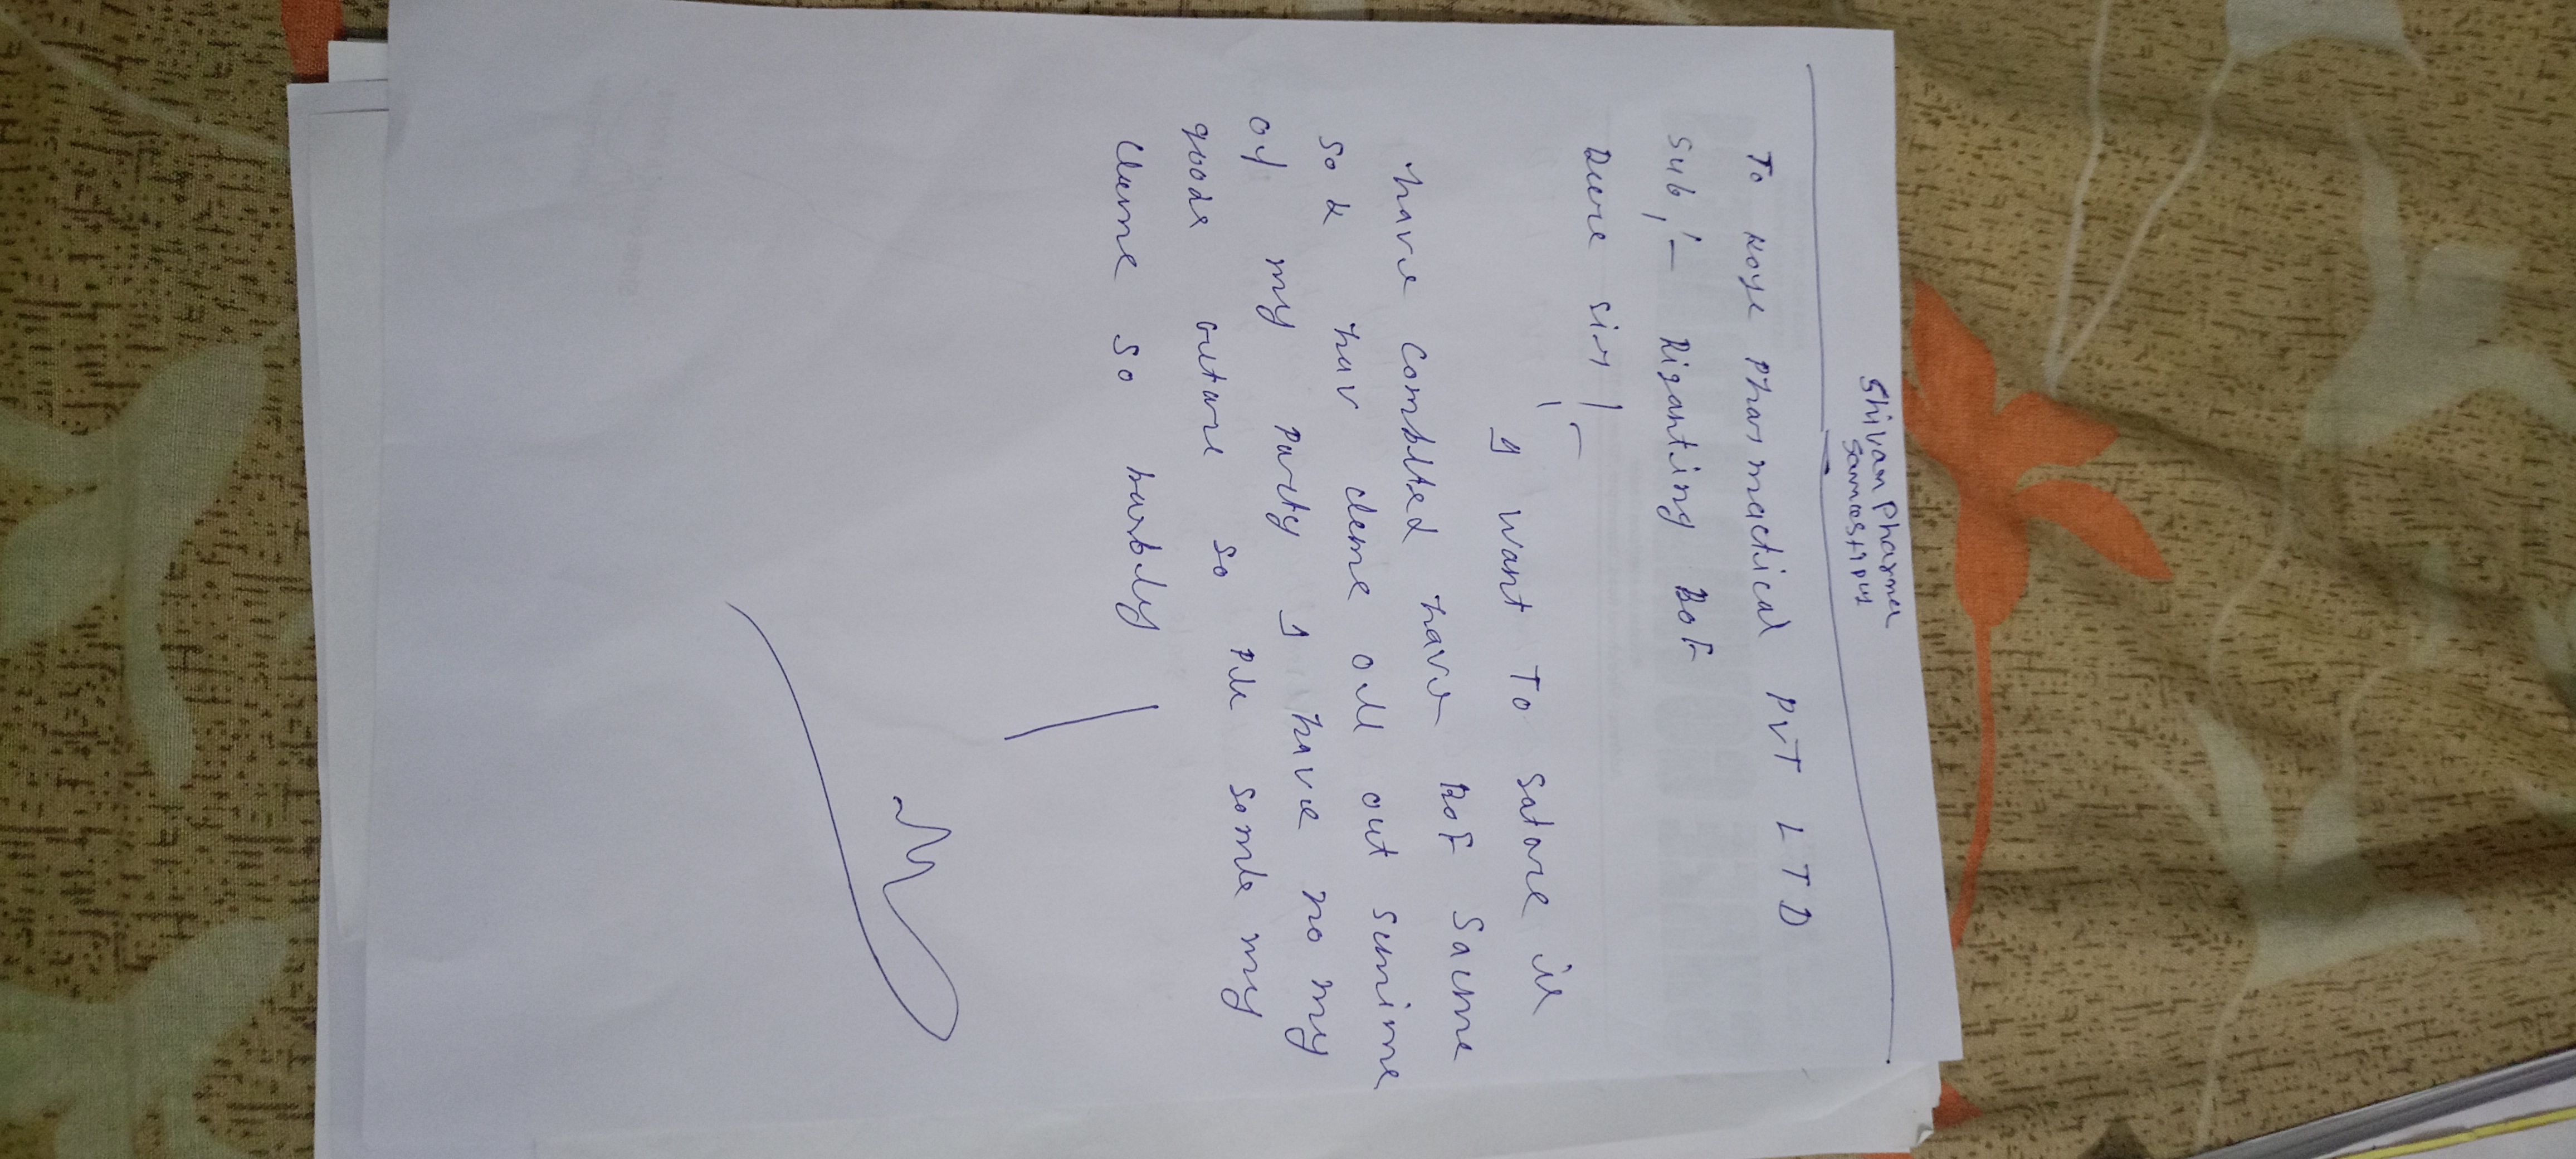 Shivam Pharma
Samastipur
To Noye Pharmactical PVT LTD
Sub,:- Riganting BOF
Deere sir
I want To Satare ix
have Combited have BOF Sacme
So & hav cleme all out scmime
of my party I have no my
goods return so Pls some my
cleme So harbly